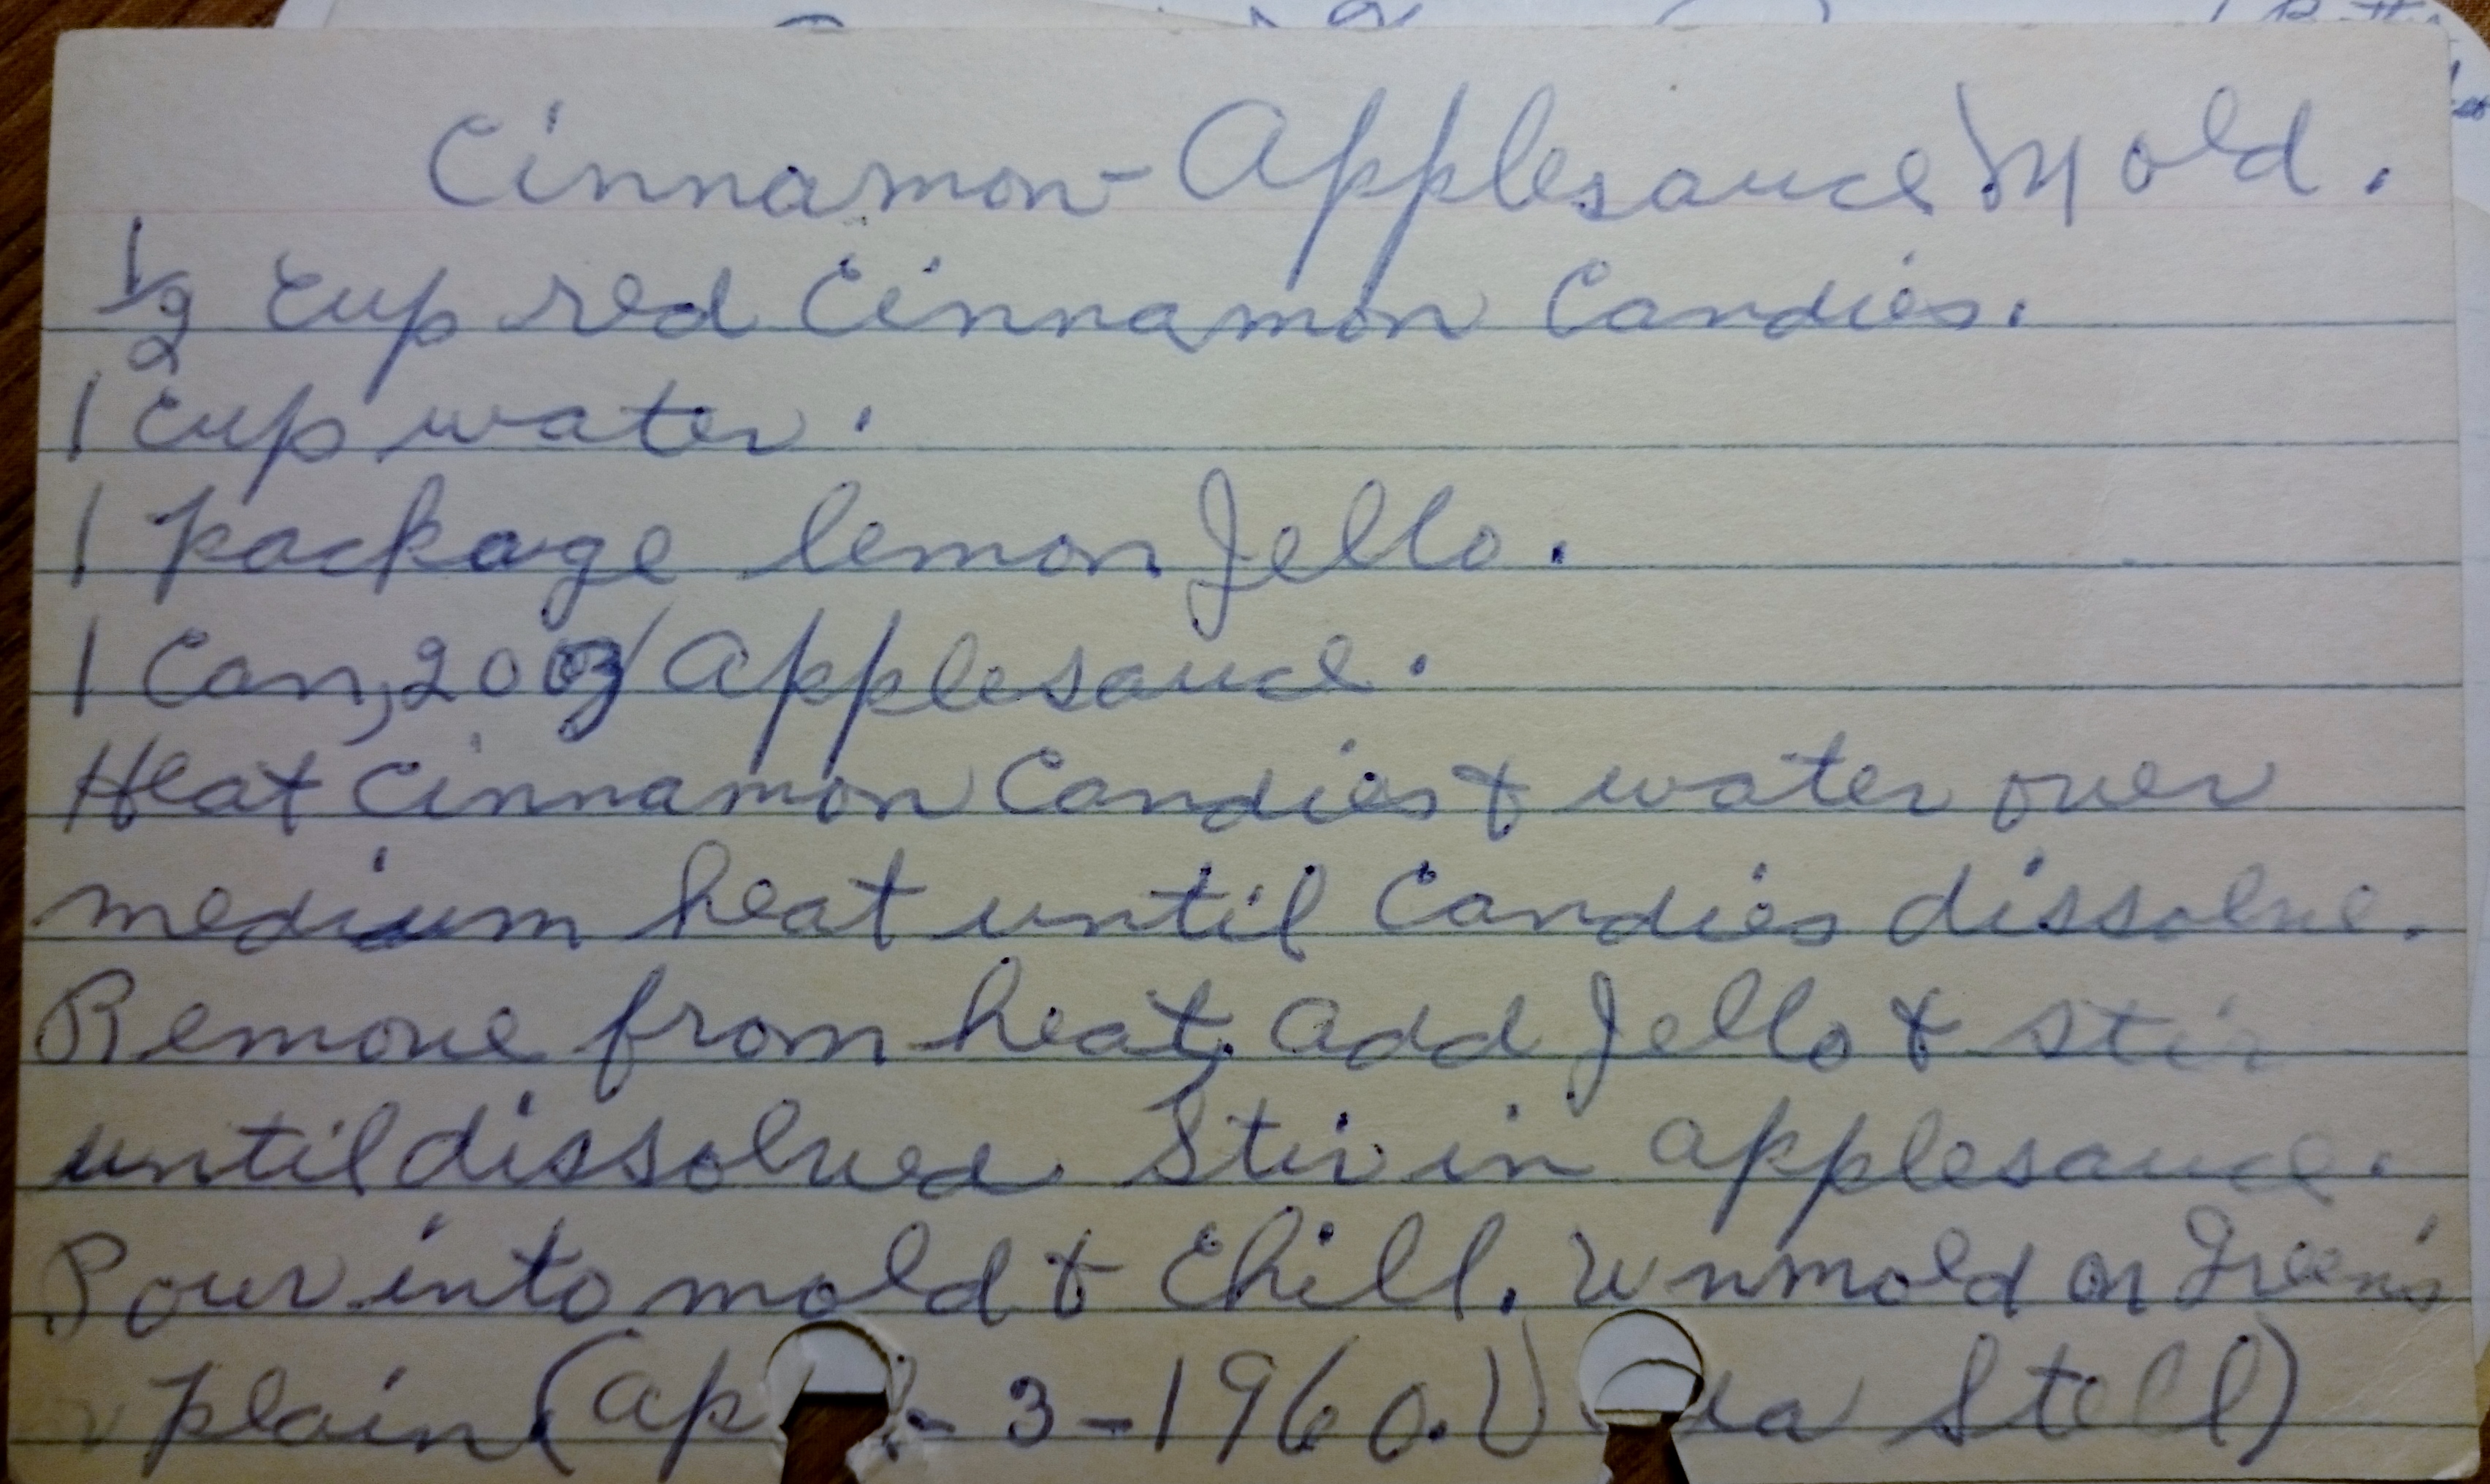 Cinnamon-Applesauce Mold.
1/2 cup red Cinnamon Candies.
1 cup water.
1 package lemon Jello.
1 Can, 20 oz Applesauce.
Heat Cinnamon Candies & water over
medium heat until Candies dissolve.
Remove from heat, add Jello & stir
until dissolved Stir in applesauce.
Pour into mold & Chill. Unmold on Greens
or plain (3-1960. Stell)